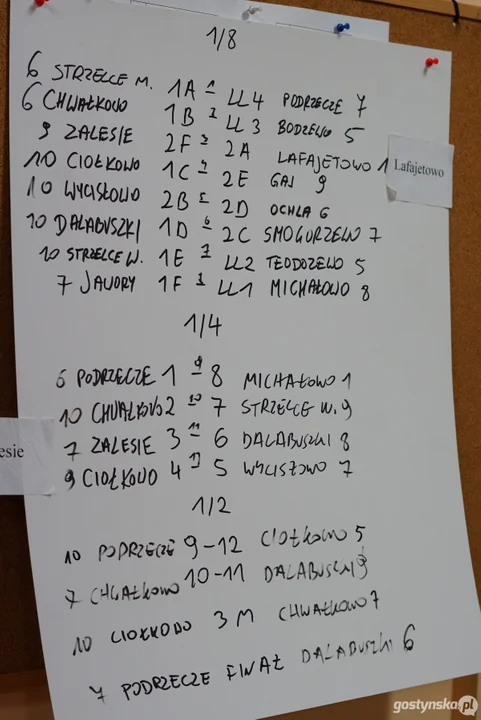 1/8
6 STRZELCE M. 1A 1 LL4 PODRZECZE 7
6 CHWAŁKOWO 1B 2 LL3 BODZEWO 5
9 ZALESIE 2F 3 2A LAFAJETOWO 1
10 CIOŁKOWO 1C 4 2E GAJ 9
10 WYCISŁOWO 2B 5 2D OCHLA 6
10 DALABUSZKI 1D 6 2C SMOGORZEWO 7
10 STRZELCE W. 1E 7 LL2 TEODOZEWO 5
7 JAWORY 1F 8 LL1 MICHAŁOWO 8
Lafajetowo
1/4
6 PODRZECZE 1 9 8 MICHAŁOWO 1
10 CHWAŁKOWO 2 10 7 STRZELCE W. 9
7 ZALESIE 3 11 6 DALABUSZKI 8
9 CIOŁKOWO 4 12 5 WYCISŁOWO 7
esie
1/2
10 PODRZECZE 9-12 CIOŁKOWO 5
7 CHWAŁKOWO 10-11 DALABUSZKI 9
10 CIOŁKOWO 3 M CHWAŁKOWO 7
7 PODRZECZE FINAŁ DALABUSZKI 6
gostynska.pl